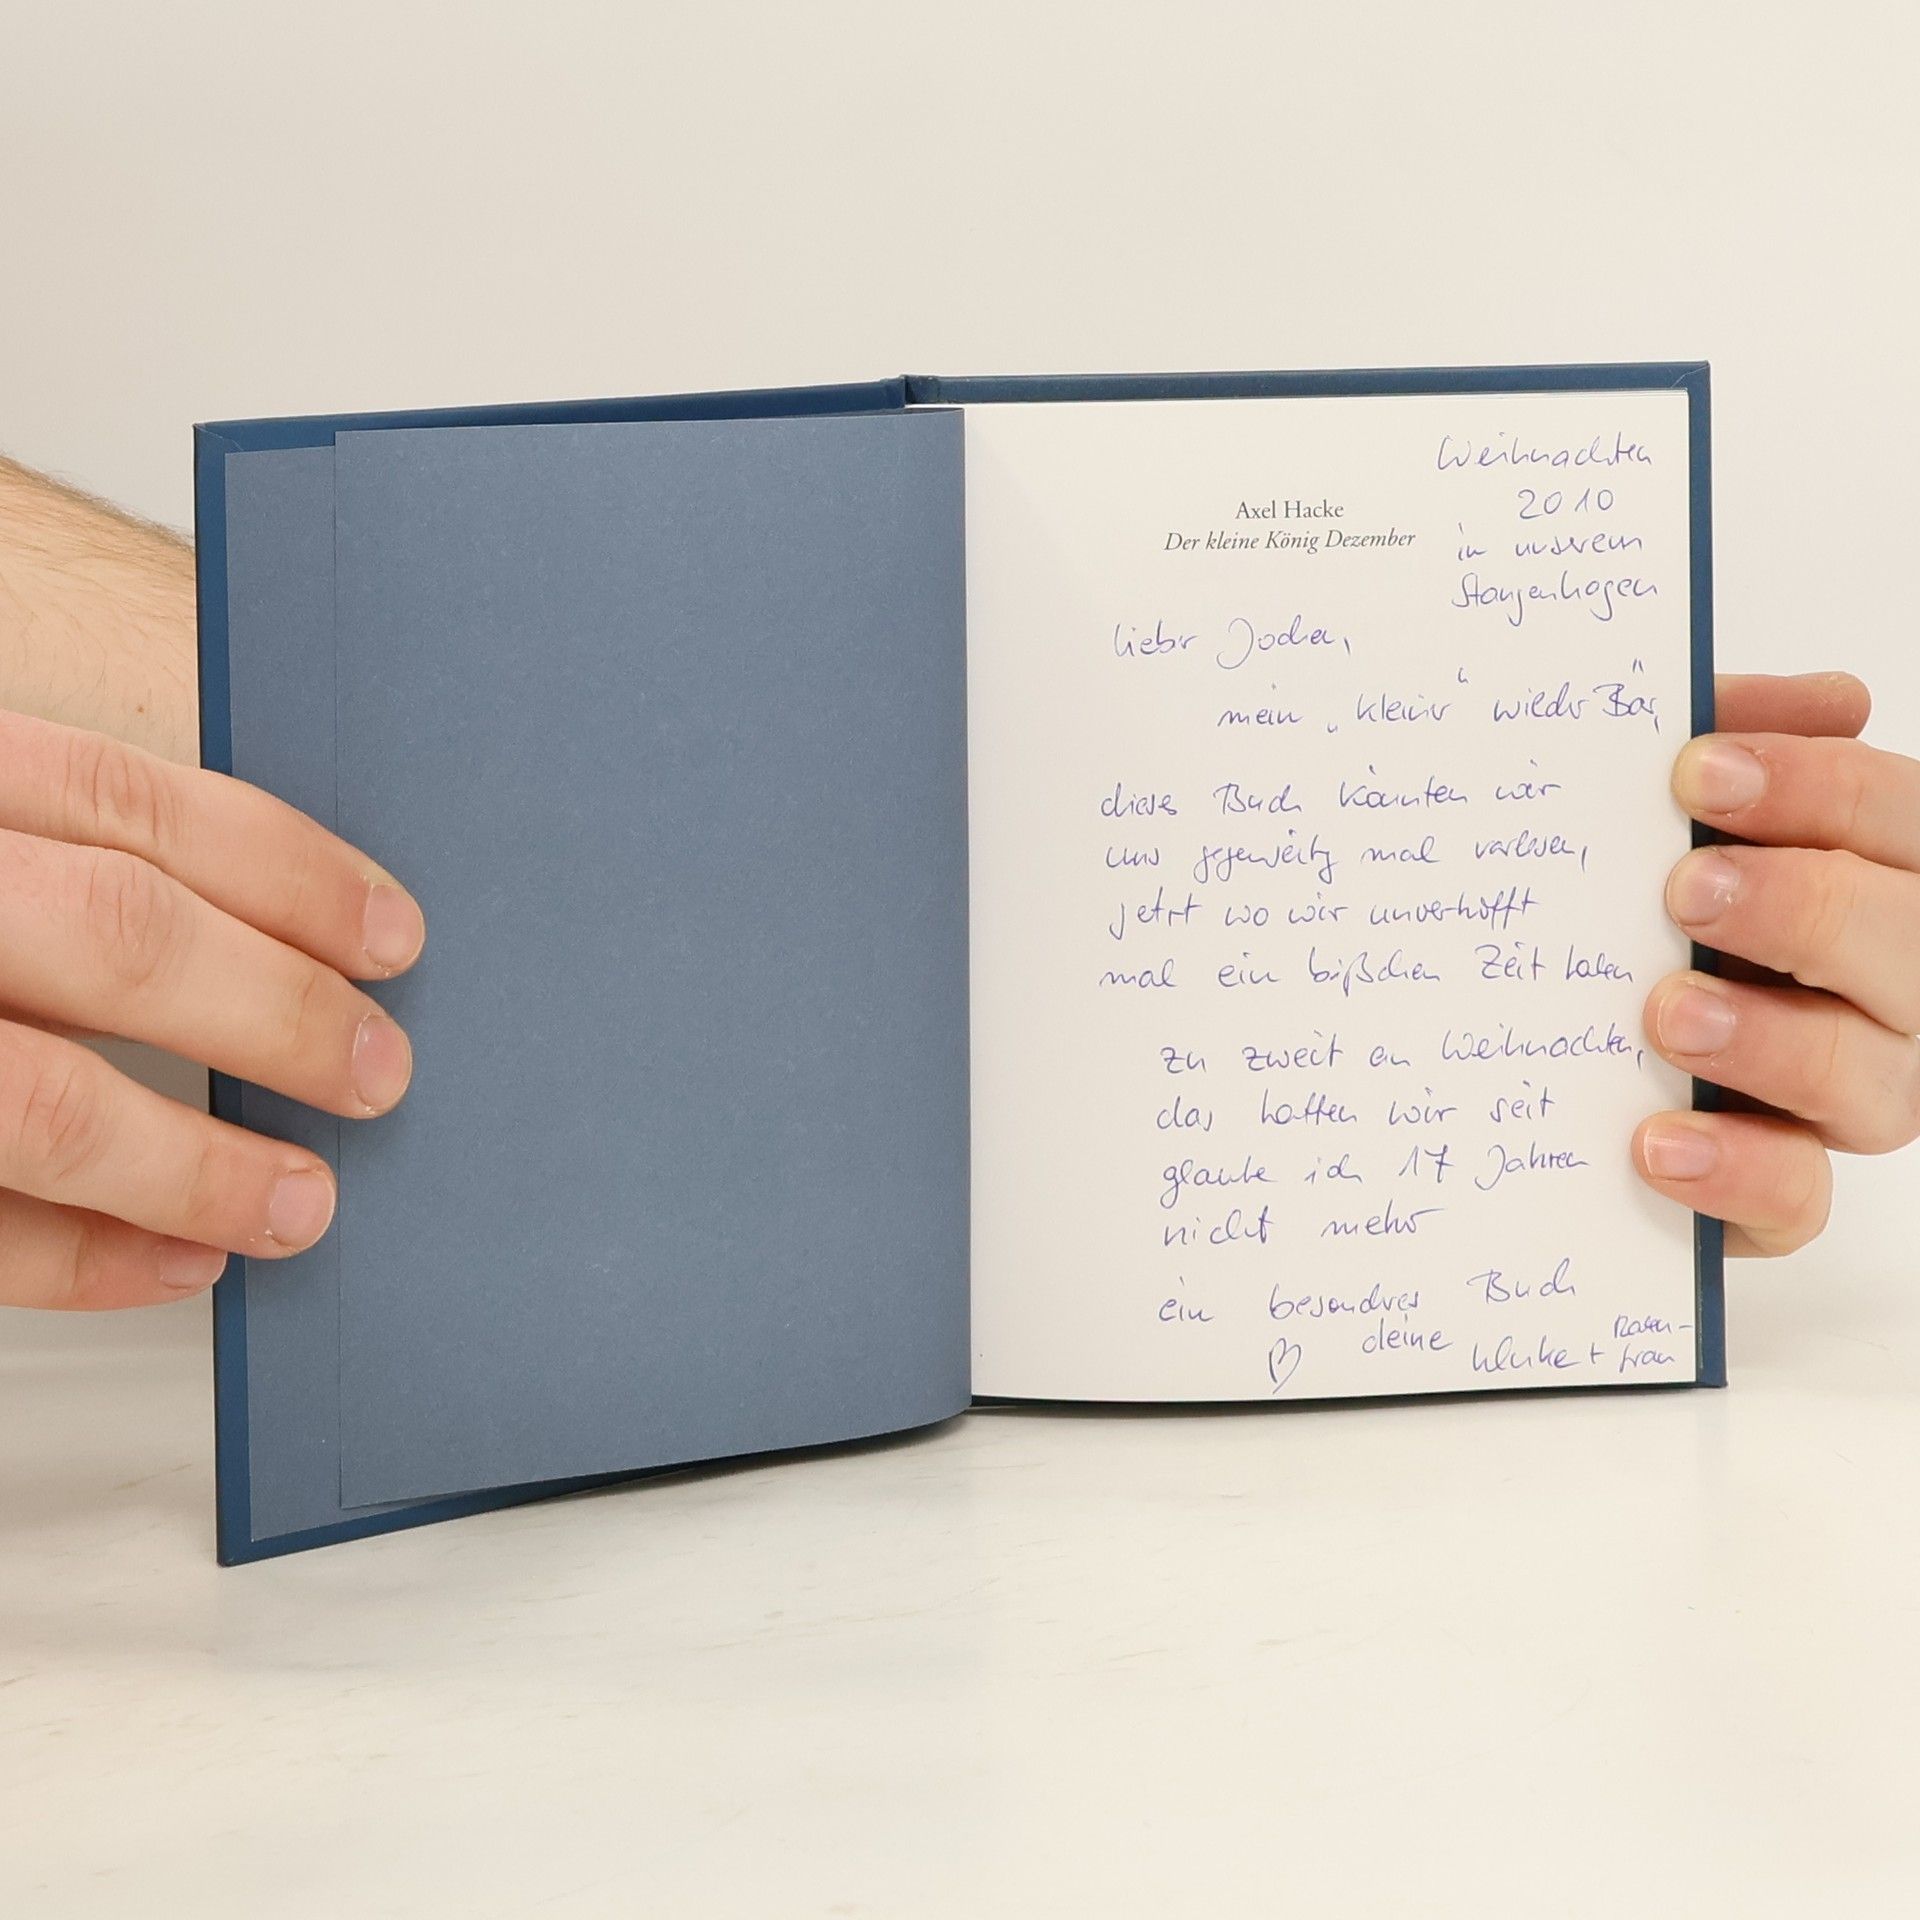 Weihnachten
2010
in unserem
Stangenhagen
Axel Hacke
Der kleine König Dezember
lieber Jochen,
mein „kleiner“ wilder Bär,
dieses Buch könnten wir
uns gegenseitig mal vorlesen,
jetzt wo wir unverhofft
mal ein bißchen Zeit haben
zu zweit an Weihnachten,
das hatten wir seit
glaube ich 17 Jahren
nicht mehr
ein besonderes Buch
deine
frau